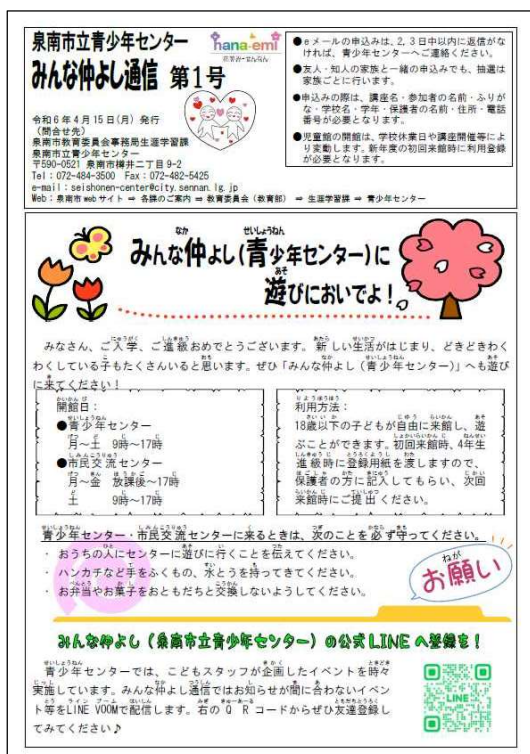 泉南市立青少年センター
みんな仲よし通信 第1号
hana-emi
令和6年4月15日(月) 発行
(問合せ先)
泉南市教育委員会事務局生涯学習課
泉南市立青少年センター
〒590-0521 泉南市樽井二丁目9-2
Tel:072-484-3500 Fax:072-482-5425
e-mail:seishonen-center@city.sennan.lg.jp
Web:泉南市webサイト ⇒ 各課のご案内 ⇒ 教育委員会(教育部) ⇒ 生涯学習課 ⇒ 青少年センター
●eメールの申込みは、2,3日中以内に返信がな
ければ、青少年センターへご連絡ください。
●友人・知人の家族と一緒の申込みでも、抽選は
家族ごとに行います。
●申込みの際は、講座名・参加者の名前・ふりが
な・学校名・学年・保護者の名前・住所・電話
番号が必要となります。
●児童館の開館は、学校休業日や講座開催等によ
り変動します。新年度の初回来館時に利用登録
が必要となります。
みんな仲よし(青少年センター)に
遊びにおいでよ!
みなさん、ご入学、ご進級おめでとうございます。新しい生活がはじまり、どきどきわく
わくしている子もたくさんいると思います。ぜひ「みんな仲よし(青少年センター)」へも遊び
に来てください!
開館日:
●青少年センター
月~土 9時~17時
●市民交流センター
月~金 放課後~17時
土 9時~17時
利用方法:
18歳以下の子どもが自由に来館し、遊
ぶことができます。初回来館時、4年生
進級時に登録用紙を渡しますので、
保護者の方に記入してもらい、次回
来館時にご提出ください。
青少年センター・市民交流センターに来るときは、次のことを必ず守ってください。
・ おうちの人にセンターに遊びに行くことを伝えてください。
・ ハンカチなど手をふくもの、水とうを持ってきてください。
・ お弁当やお菓子をおともだちと交換しないようしてください。
お願い
みんな仲よし(泉南市立青少年センター)の公式LINEへ登録を!
青少年センターでは、こどもスタッフが企画したイベントを時々
実施しています。みんな仲よし通信ではお知らせが間に合わないイベン
ト等をLINE VOOMで配信します。右のQRコードからぜひ友達登録し
てみてください♪
LINE